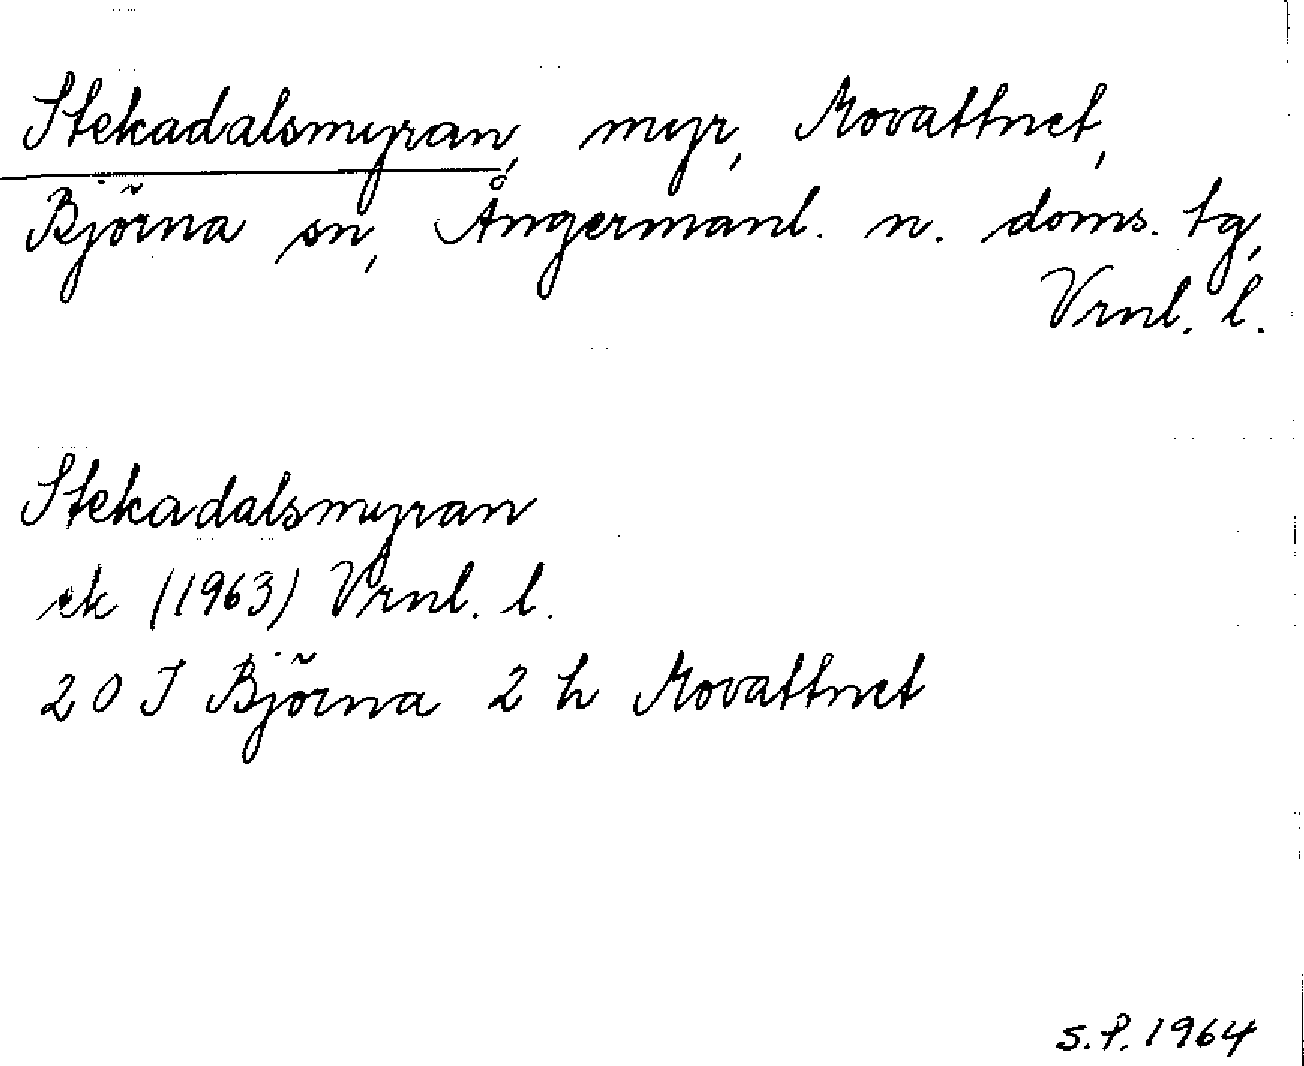 Stekadalsmyran, myr, Movattnet,
Björna sn, Ångermanl. n. doms. tg,
Vrnl. l.
Stekadalsmyran
ek (1963) Vrnl. l.
20 I Björna 2 h Movattnet
S.P. 1964